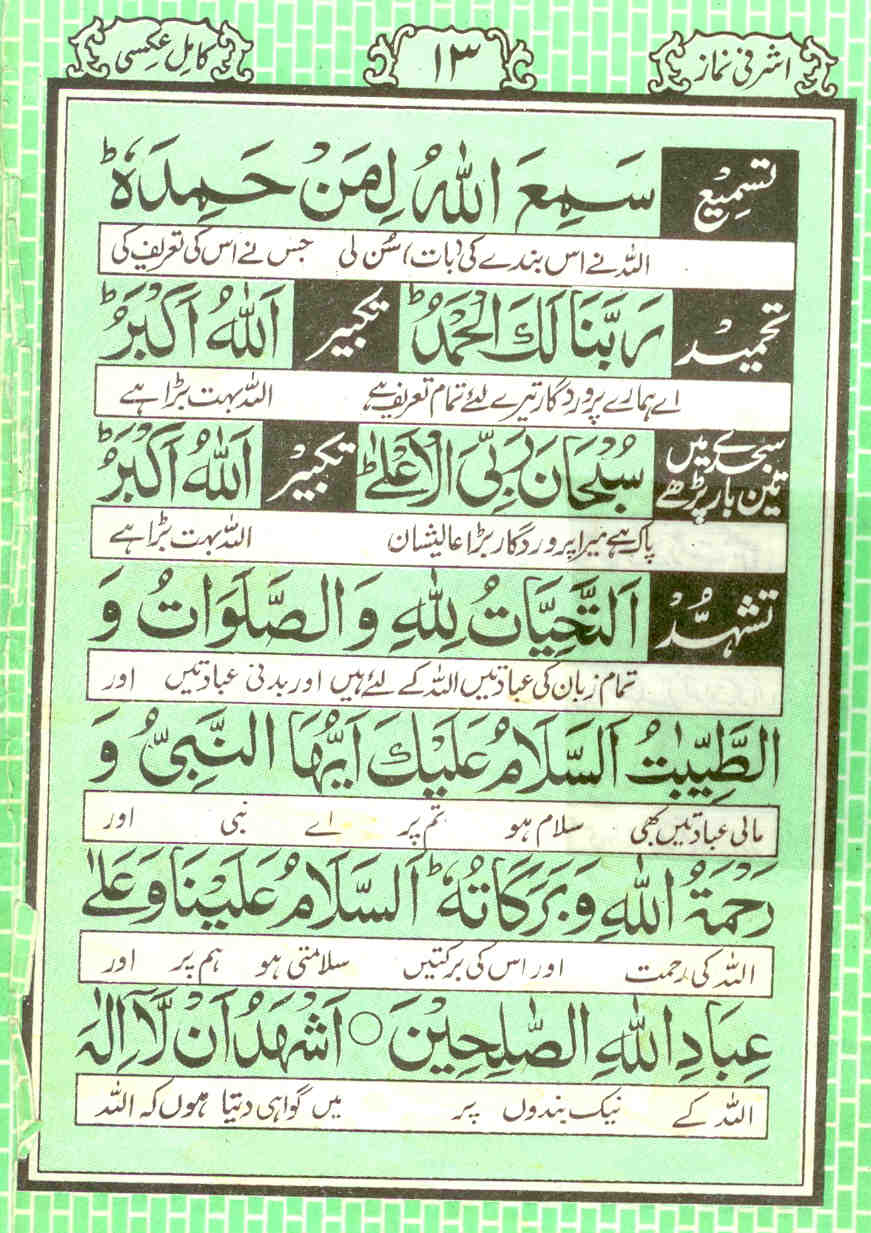 اشرفی نماز ۱۳ کامل عکسی
تسمیع سَمِعَ اللّٰهُ لِمَنْ حَمِدَهٗ ؕ
اللہ نے اس بندے کی (بات) سُن لی جس نے اس کی تعریف کی
تحمید رَبَّنَا لَكَ الْحَمْدُ ؕ تکبیر اَللّٰهُ اَكْبَرُ ؕ
اے ہمارے پروردگار تیرے لئے تمام تعریف ہے اللہ بہت بڑا ہے
سجدے میں تین بار پڑھے سُبْحَانَ رَبِّیَ الْاَعْلٰی ؕ تکبیر اَللّٰهُ اَكْبَرُ ؕ
پاک ہے میرا پروردگار بڑا عالیشان اللہ بہت بڑا ہے
تشہُّدْ اَلتَّحِیَّاتُ لِلّٰهِ وَالصَّلَوَاتُ وَ
تمام زبان کی عبادتیں اللہ کے لئے ہیں اور بدنی عبادتیں اور
الطَّیِّبٰتُ اَلسَّلَامُ عَلَیْكَ اَیُّهَا النَّبِیُّ وَ
مالی عبادتیں بھی سلام ہو تم پر اے نبی اور
رَحْمَةُ اللّٰهِ وَبَرَكَاتُهٗ ؕ اَلسَّلَامُ عَلَیْنَا وَعَلٰی
اللہ کی رحمت اور اس کی برکتیں سلامتی ہو ہم پر اور
عِبَادِ اللّٰهِ الصّٰلِحِیْنَ ○ اَشْهَدُ اَنْ لَّاۤ اِلٰهَ
اللہ کے نیک بندوں پر میں گواہی دیتا ہوں کہ اللہ